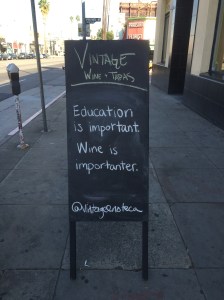 VINTAGE
WINE + TAPAS
Education
is important.
Wine is
importanter.
@VintageEnoteca